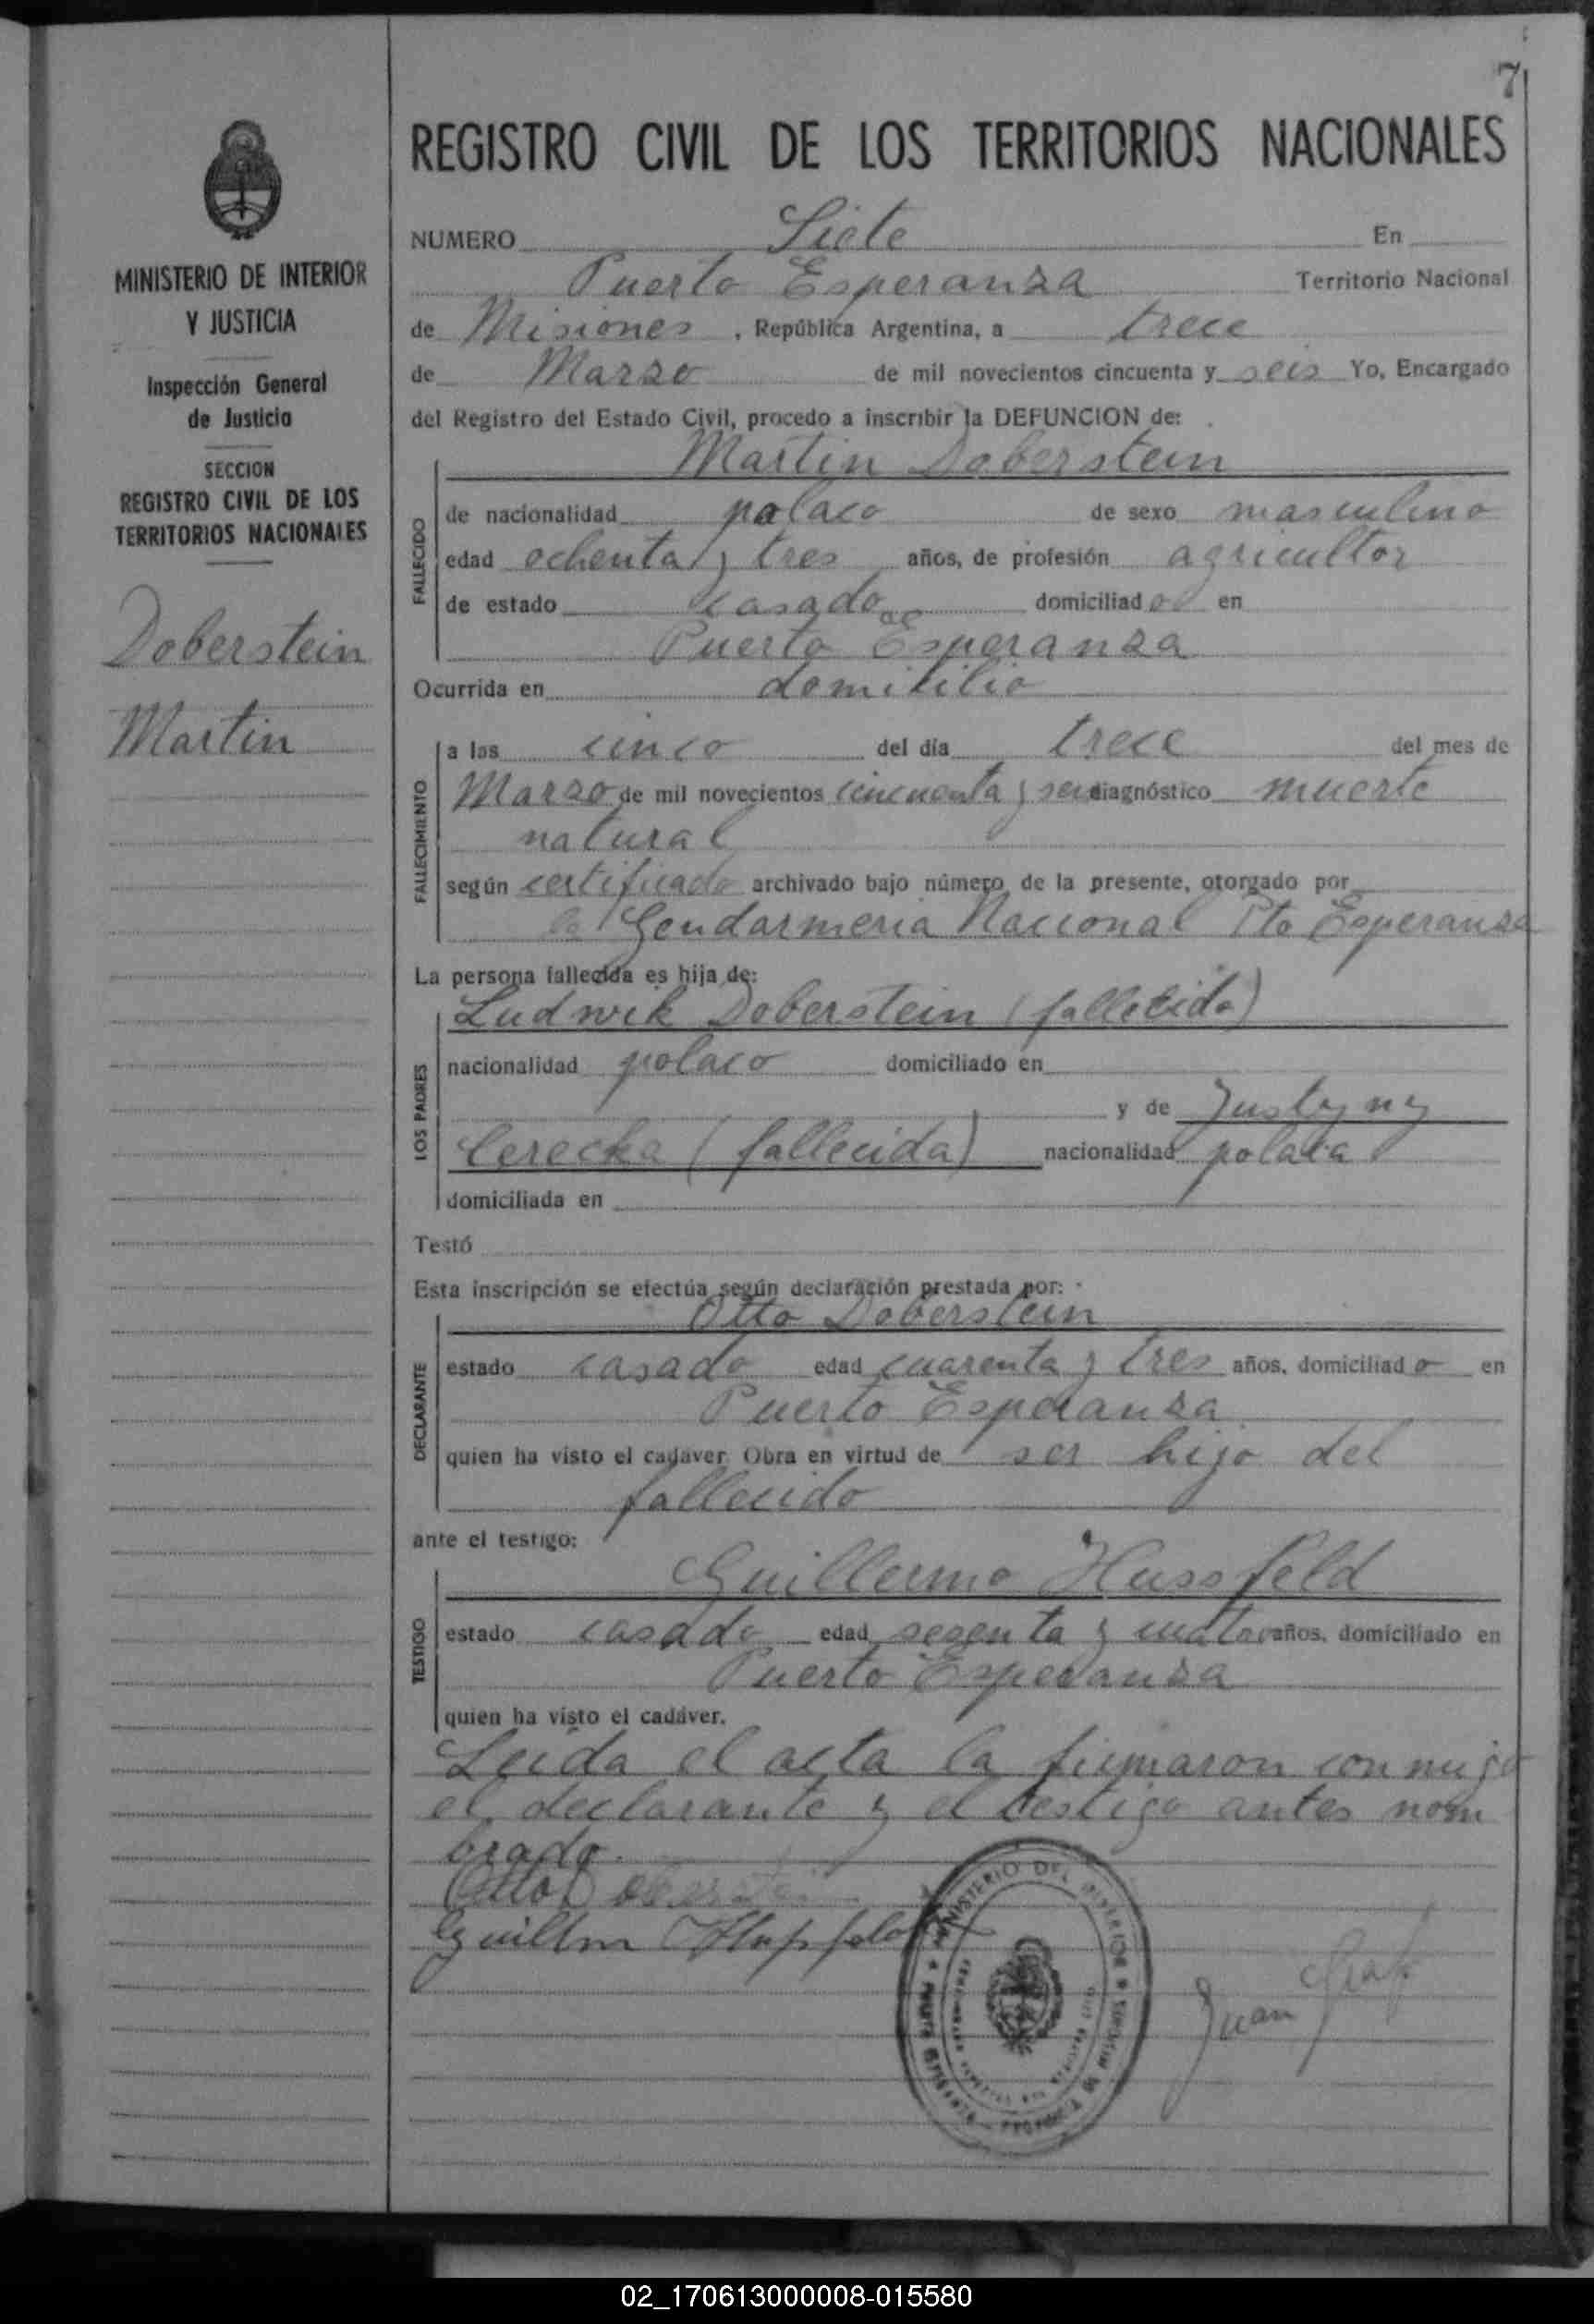 7
REGISTRO CIVIL DE LOS TERRITORIOS NACIONALES
MINISTERIO DE INTERIOR
Y JUSTICIA
Inspección General
de Justicia
SECCION
REGISTRO CIVIL DE LOS
TERRITORIOS NACIONALES
Doberstein
Martin
NUMERO Siete En
Puerto Esperanza Territorio Nacional
de Misiones, República Argentina, a trece
de Marzo de mil novecientos cincuenta y seis Yo, Encargado
del Registro del Estado Civil, procedo a inscribir la DEFUNCION de:
Martin Doberstein
FALLECIDO
de nacionalidad polaco de sexo masculino
edad ochenta y tres años, de profesión agricultor
de estado casado domiciliado en
Puerto Esperanza
Ocurrida en domicilio
FALLECIMIENTO
a las cinco del día trece del mes de
Marzo de mil novecientos cincuenta y seis diagnóstico muerte
natural
según certificado archivado bajo número de la presente, otorgado por
la Gendarmeria Nacional Pto Esperanza
La persona fallecida es hija de:
LOS PADRES
Ludwik Doberstein (fallecido)
nacionalidad polaco domiciliado en
y de Justyny
Cerecka (fallecida) nacionalidad polaca
domiciliada en
Testó
Esta inscripción se efectúa según declaración prestada por:
Otto Doberstein
DECLARANTE
estado casado edad cuarenta y tres años, domiciliado en
Puerto Esperanza
quien ha visto el cadáver. Obra en virtud de ser hijo del
fallecido
ante el testigo:
Guillermo Hussfeld
TESTIGO
estado casado edad sesenta y cuatro años, domiciliado en
Puerto Esperanza
quien ha visto el cadáver.
Leida el acta la firmaron conmigo
el declarante y el testigo antes nom
brado.
Otto Doberstein
MINISTERIO DEL INTERIOR
Juan
02_170613000008-015580